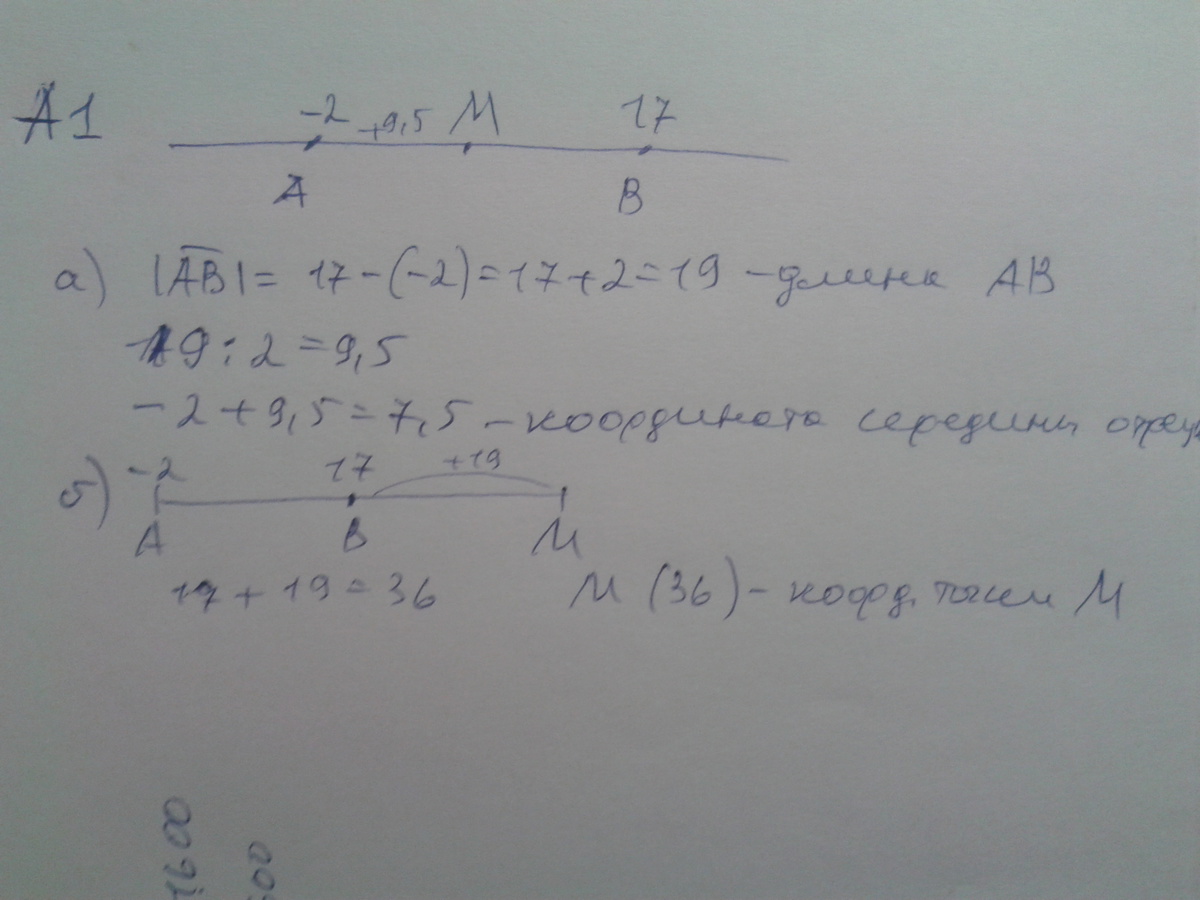 A1
-2 +9,5 M 17
A B
а) |AB| = 17-(-2)=17+2=19 - длина AB
19:2=9,5
-2+9,5=7,5 - координата середины отрез
б) -2 17 +19
A B M
17+19=36 M (36) - коорд. точки M